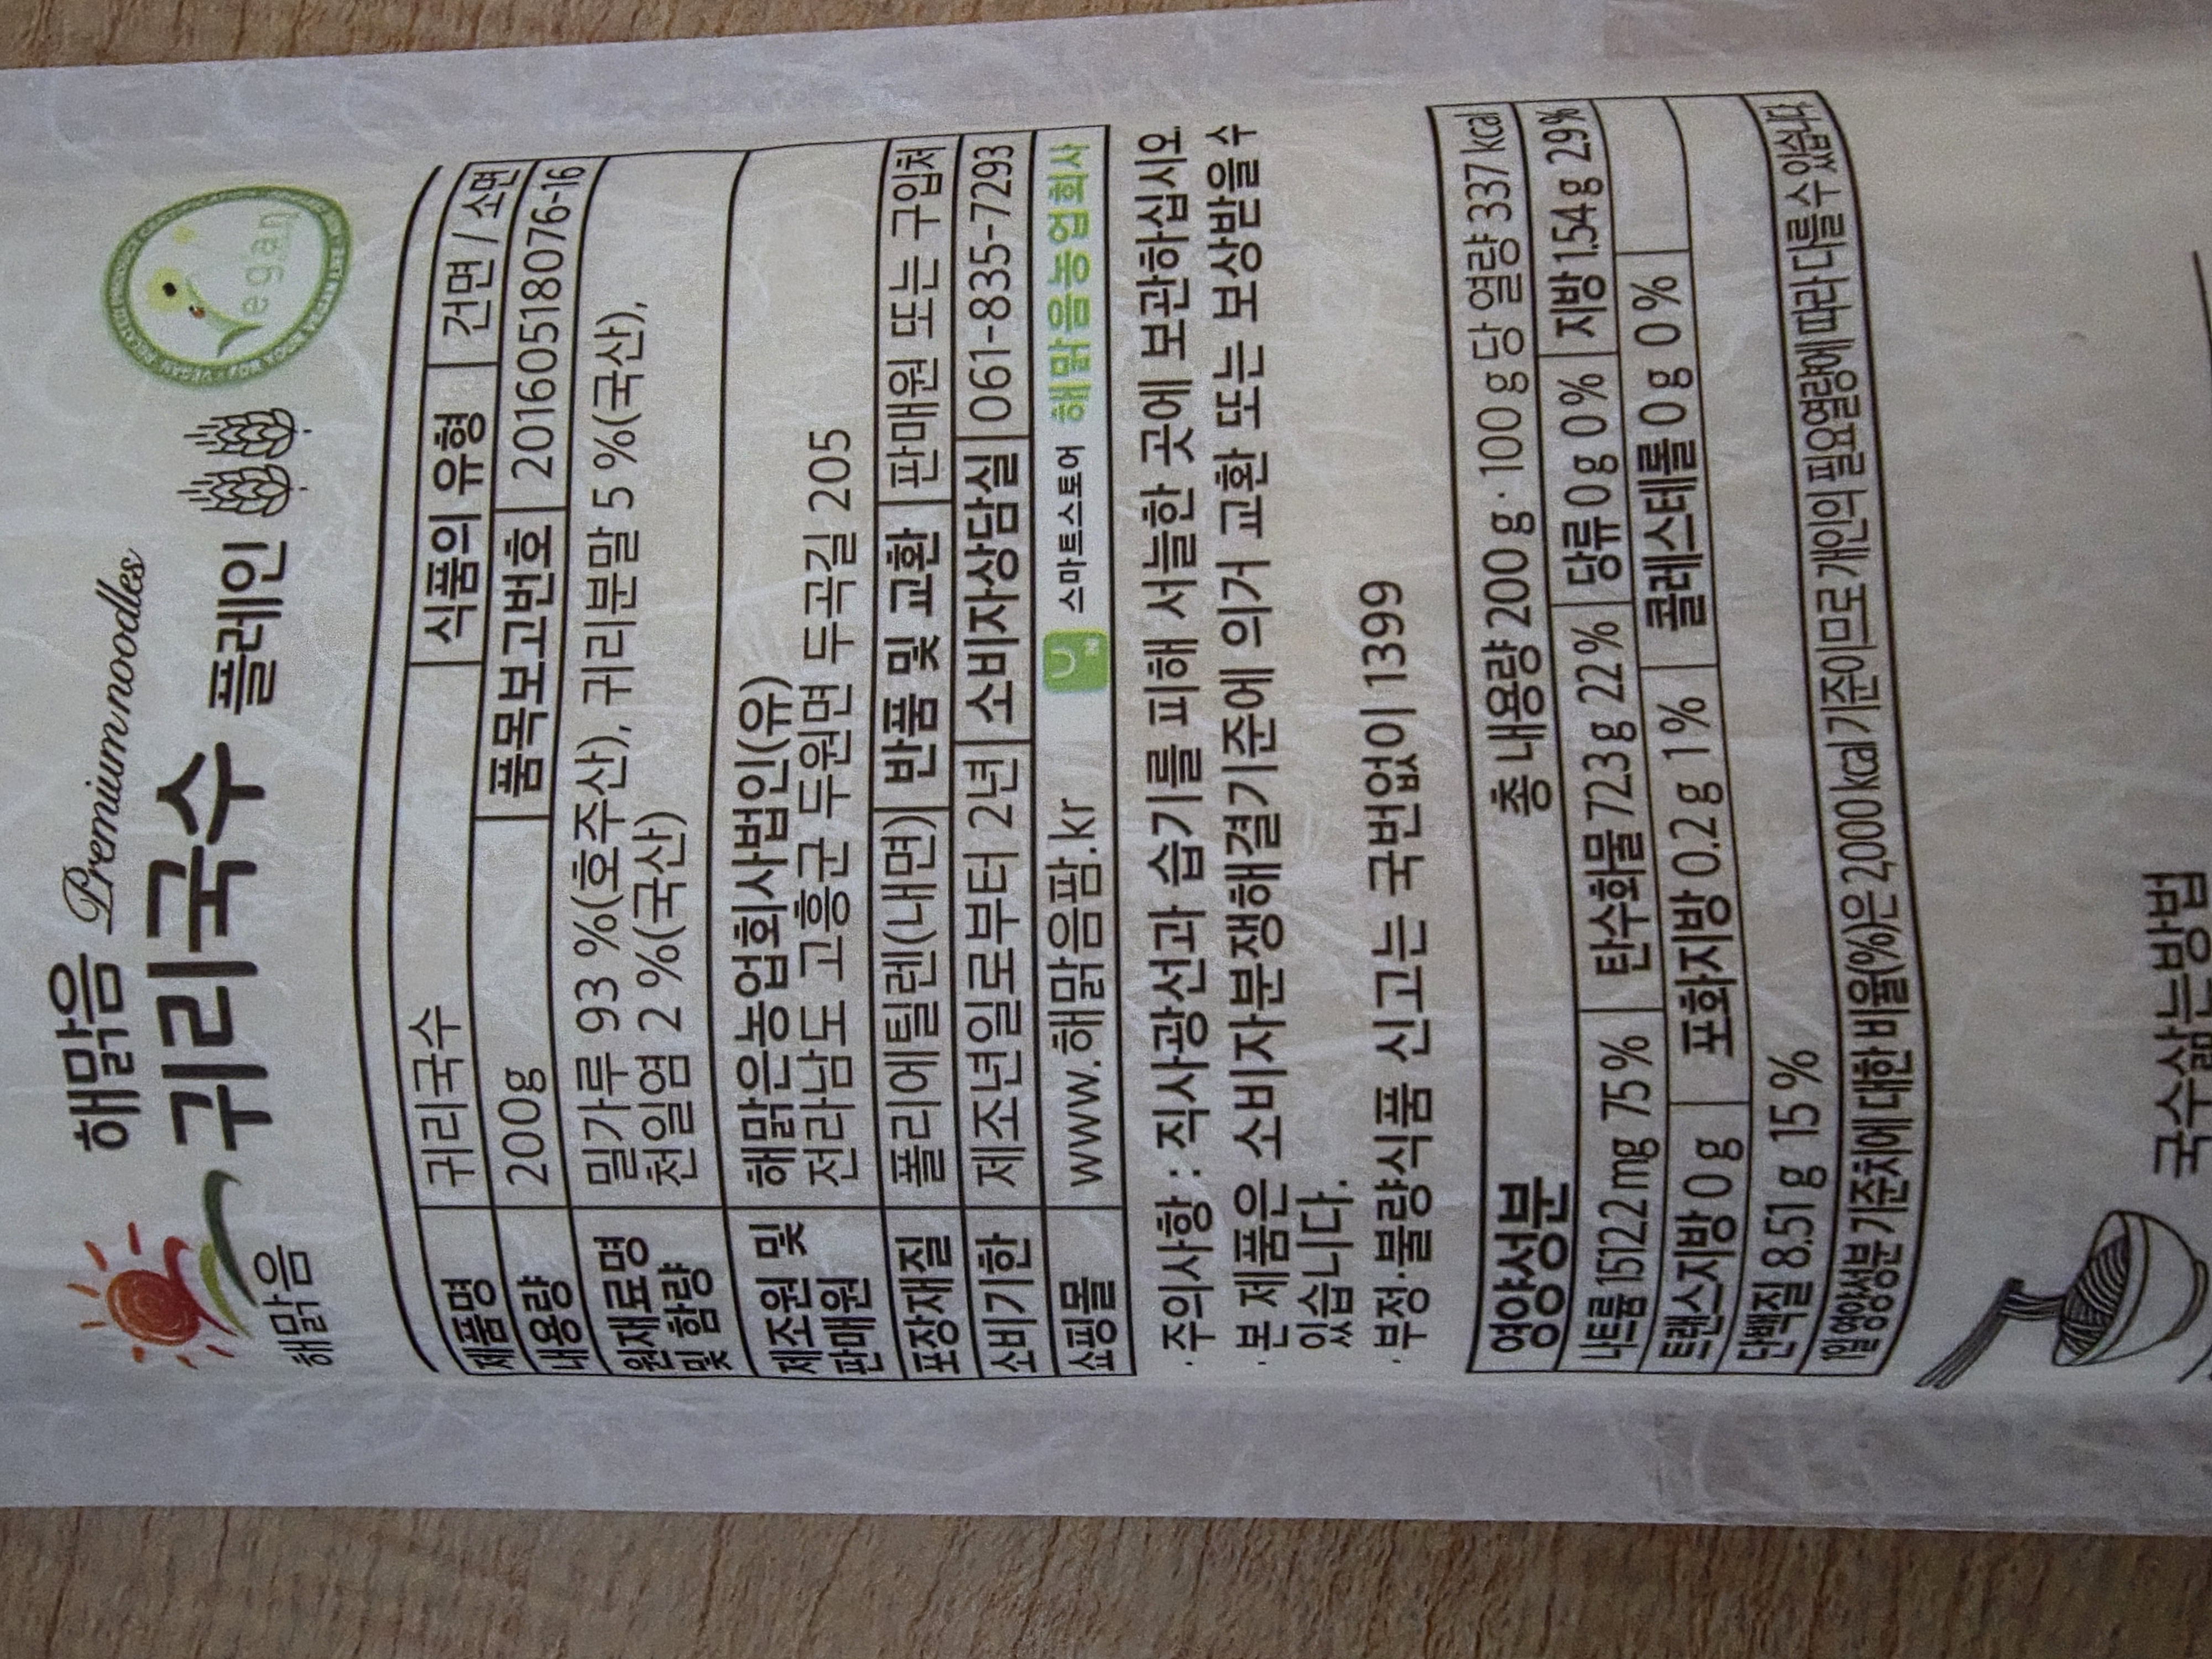 해맑음 Premium noodles
귀리국수 플레인
해맑음
Vegan
제품명 귀리국수 식품의 유형 건면 / 소면
내용량 200g 품목보고번호 20160518076-16
원재료명 및 함량 밀가루 93 %(호주산), 귀리분말 5 %(국산),
천일염 2 %(국산)
제조원 및 판매원 해맑은농업회사법인(유)
전라남도 고흥군 두원면 두곡길 205
포장재질 폴리에틸렌(내면) 반품 및 교환 판매원 또는 구입처
소비기한 제조년일로부터 2년 소비자상담실 061-835-7293
쇼핑몰 www.해맑음팜.kr 스마트스토어 해맑을농업회사
· 주의사항 : 직사광선과 습기를 피해 서늘한 곳에 보관하십시오
· 본 제품은 소비자분쟁해결기준에 의거 교환 또는 보상받을 수
있습니다.
· 부정·불량식품 신고는 국번없이 1399
영양성분 총 내용량 200 g · 100 g 당 열량 337 kcal
나트륨 1512.2 mg 75 % 탄수화물 72.3 g 22 % 당류 0 g 0 % 지방 1.54 g 2.9 %
트랜스지방 0 g 포화지방 0.2 g 1 % 콜레스테롤 0 g 0 %
단백질 8.51 g 15 %
1일 영양성분 기준치에 대한 비율(%)은 2,000 kcal 기준이므로 개인의 필요열량에 따라 다를 수 있습니다.
국수삶는방법